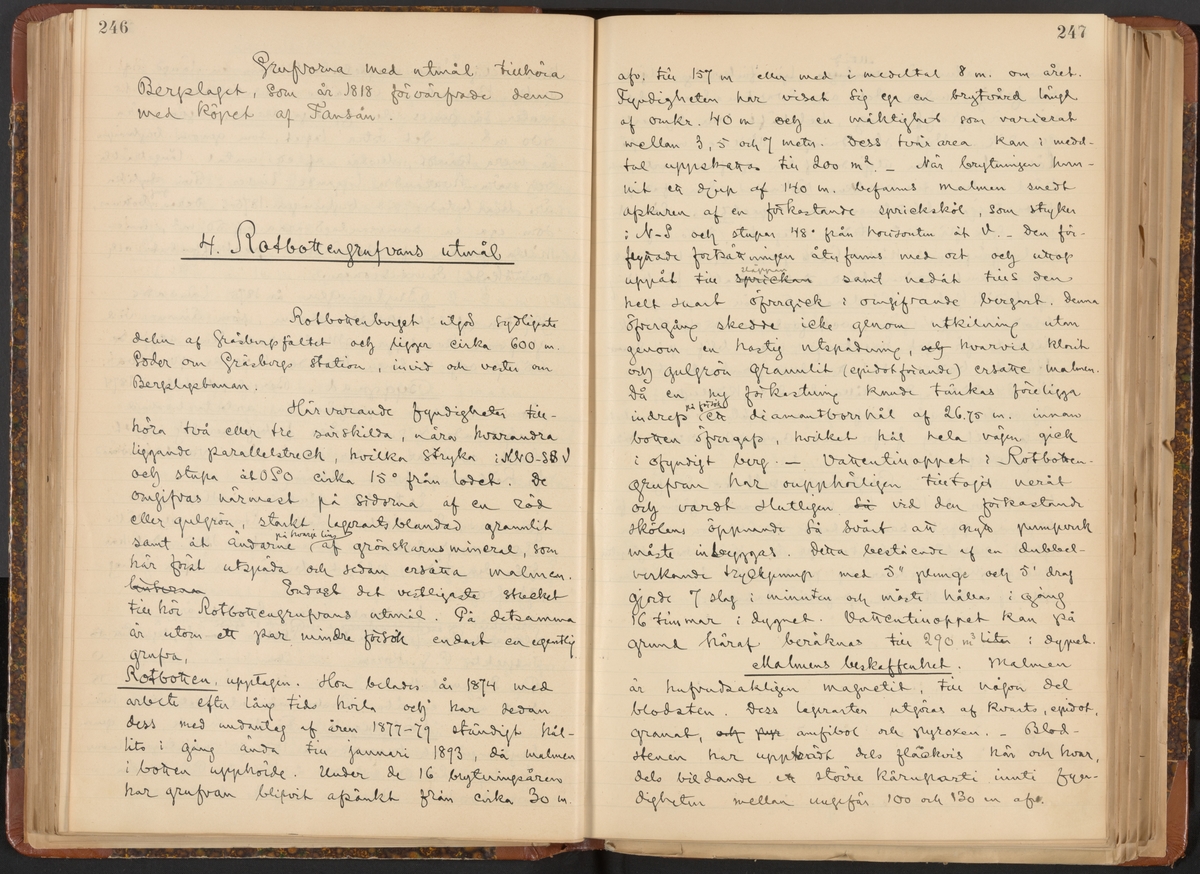 246
Grufvorna med utmål tillhöra
Bergslaget, som år 1818 förvärfvade dem
med köpet af Fansån.
4. Rotbottengrufvans utmål
Rotbottenberget utgör sydligaste
delen af Gräsbergsfältet och ligger cirka 600 m.
söder om Gräsbergs station, invid och vester om
Bergslagsbanan.
Härvarande fyndigheter till-
höra två eller tre särskilda, nära hvarandra
liggande parallelstreck, hvilka stryka i NNO-SSV
och stupa åt OSO cirka 15° från lodet. De
omgifvas närmast på sidorna af en röd
eller gulgrön, starkt lagerartsblandad granulit
samt åt ändarne på hvarje linse af grönskarnsmineral, som
här först utspäda och sedan ersätta malmen.
Endast det vestligaste strecket
tillhör Rotbottengrufvans utmål. På detsamma
är utom ett par mindre försök endast en egentlig
grufva,
Rotbotten, upptagen. Hon belades år 1874 med
arbete efter lång tids hvila och har sedan
dess med undantag af åren 1877-79 ständigt hål-
lits i gång ända till januari 1893, då malmen
i botten upphörde. Under de 16 brytningsåren
har grufvan blifvit afsänkt från cirka 30 m
247
afv. till 157 m eller med i medeltal 8 m. om året.
Fyndigheten har visat sig ega en brytvärd längd
af omkr. 40 m och en mäktighet som varierat
mellan 3,5 och 7 meter. Dess tvärarea kan i medel-
tal uppskattas till 200 m². – När brytningen hun-
nit ett djup af 140 m. befanns malmen snedt
afskuren af en förkastande spricksköl, som stryker
i N-S och stupar 48° från horisonten åt V. – Den för-
flyttade fortsättningen återfanns med ort och uttogs
uppåt till släppan sprickan samt nedåt tills den
helt snart öfvergick i omgifvande bergart. Denna
öfvergång skedde icke genom utkilning utan
genom en hastig utspädning, och hvarvid klorit
och gulgrön granulit (epidotförande) ersatte malmen.
Då en ny förkastning kunde tänkas föreligga
indrefs på försök ett diamantborrhål af 26.75 m. innan
botten öfvergafs, hvilket hål hela vägen gick
i ofyndigt berg. – Vattentilloppet i Rotbotten-
grufvan har oupphörligen tilltagit neråt
och vardt slutligen så vid den förkastande
skölens öppnande så svårt att nya pumpverk
måste inbyggas. Detta bestående af en dubbel-
verkande tryckpump med 5" plunge och 5' drag
gjorde 7 slag i minuten och måste hållas i gång
16 timmar i dygnet. Vattentilloppet kan på
grund häraf beräknas till 290 m³ liter i dygnet.
Malmens beskaffenhet. Malmen
är hufvudsakligen magnetit, till någon del
blodsten. Dess lagerarter utgöras af kvarts, epidot,
granat, och pyr amfibol och pyroxen. – Blod-
stenen har uppträdt dels fläckvis här och hvar,
dels bildande ett större kärnparti inuti fyn-
digheten mellan ungefär 100 och 130 m afv.